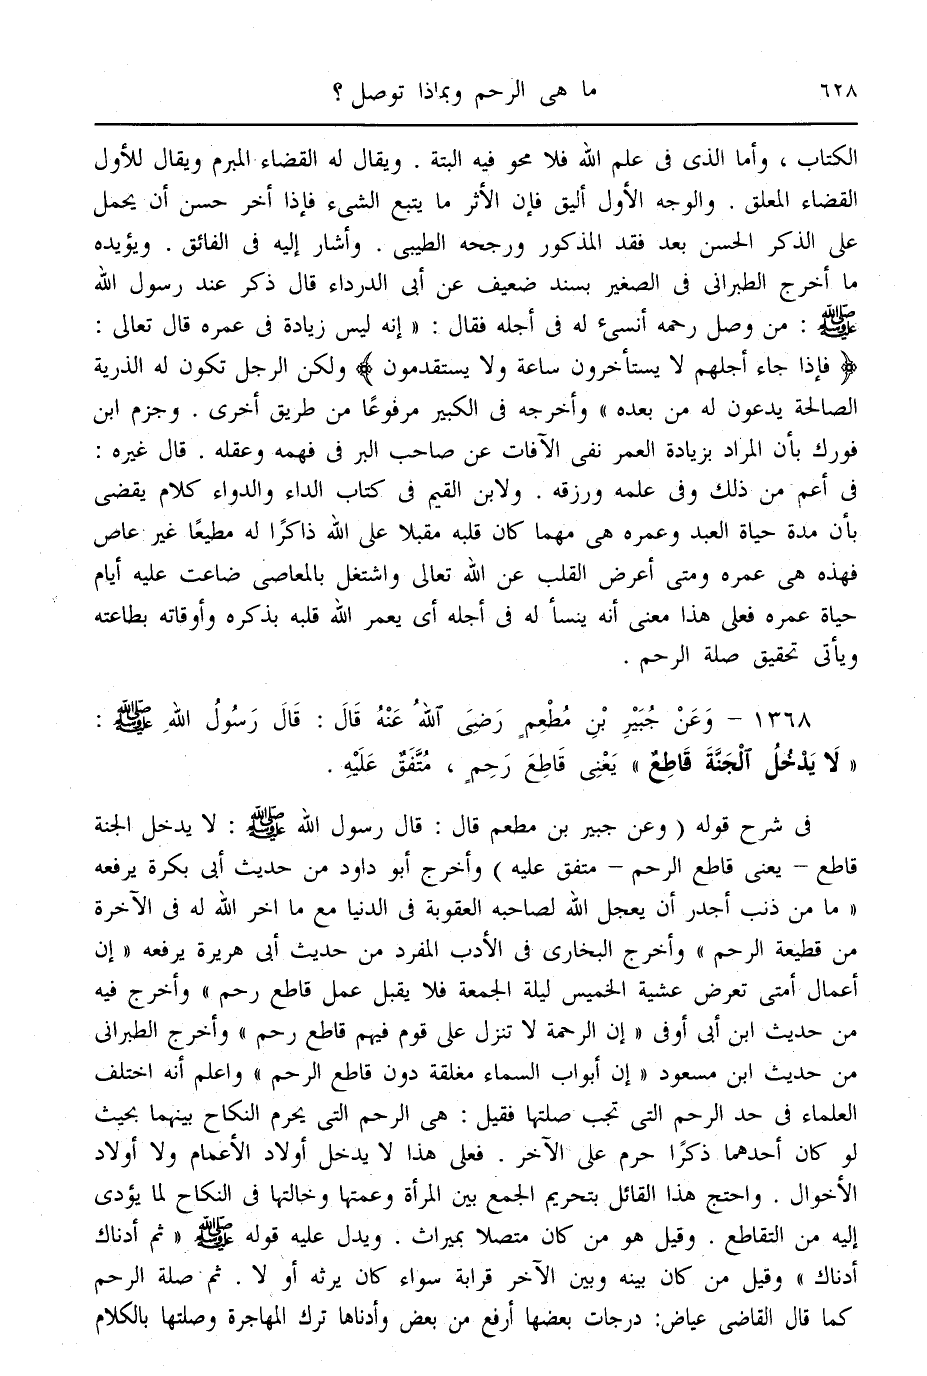 ٦٢٨ ما هى الرحم وبماذا توصل ؟
الكتاب ، وأما الذى فى علم الله فلا محو فيه البتة . ويقال له القضاء المبرم ويقال للأول
القضاء المعلق . والوجه الأول أليق فإن الأثر ما يتبع الشىء فإذا أخر حسن أن يحمل
على الذكر الحسن بعد فقد المذكور ورجحه الطيبى . وأشار إليه فى الفائق . ويؤيده
ما أخرج الطبرانى فى الصغير بسند ضعيف عن أبى الدرداء قال ذكر عند رسول الله
ﷺ : من وصل رحمه أنسىء له فى أجله فقال : « إنه ليس زيادة فى عمره قال تعالى :
﴿ فإذا جاء أجلهم لا يستأخرون ساعة ولا يستقدمون ﴾ ولكن الرجل تكون له الذرية
الصالحة يدعون له من بعده » وأخرجه فى الكبير مرفوعًا من طريق أخرى . وجزم ابن
فورك بأن المراد بزيادة العمر نفى الآفات عن صاحب البر فى فهمه وعقله . قال غيره :
فى أعم من ذلك وفى علمه ورزقه . ولابن القيم فى كتاب الداء والدواء كلام يقضى
بأن مدة حياة العبد وعمره هى مهما كان قلبه مقبلا على الله ذاكرًا له مطيعًا غير عاص
فهذه هى عمره ومتى أعرض القلب عن الله تعالى واشتغل بالمعاصى ضاعت عليه أيام
حياة عمره فعلى هذا معنى أنه ينسأ له فى أجله أى يعمر الله قلبه بذكره وأوقاته بطاعته
ويأتى تحقيق صلة الرحم .
١٣٦٨ – وَعَنْ جُبَيْرِ بْنِ مُطْعِمٍ رَضِىَ ٱللهُ عَنْهُ قَالَ : قَالَ رَسُولُ اللهِ ﷺ :
« لَا يَدْخُلُ ٱلْجَنَّةَ قَاطِعٌ » يَعْنِى قَاطِعَ رَحِمٍ ، مُتَّفَقٌ عَلَيْهِ .
فى شرح قوله ( وعن جبير بن مطعم قال : قال رسول الله ﷺ : لا يدخل الجنة
قاطع – يعنى قاطع الرحم – متفق عليه ) وأخرج أبو داود من حديث أبى بكرة يرفعه
« ما من ذنب أجدر أن يعجل الله لصاحبه العقوبة فى الدنيا مع ما اخر الله له فى الآخرة
من قطيعة الرحم » وأخرج البخارى فى الأدب المفرد من حديث أبى هريرة يرفعه « إن
أعمال أمتى تعرض عشية الخميس ليلة الجمعة فلا يقبل عمل قاطع رحم » وأخرج فيه
من حديث ابن أبى أوفى « إن الرحمة لا تنزل على قوم فيهم قاطع رحم » وأخرج الطبرانى
من حديث ابن مسعود « إن أبواب السماء مغلقة دون قاطع الرحم » واعلم أنه اختلف
العلماء فى حد الرحم التى تجب صلتها فقيل : هى الرحم التى يحرم النكاح بينهما بحيث
لو كان أحدهما ذكرًا حرم على الآخر . فعلى هذا لا يدخل أولاد الأعمام ولا أولاد
الأخوال . واحتج هذا القائل بتحريم الجمع بين المرأة وعمتها وخالتها فى النكاح لما يؤدى
إليه من التقاطع . وقيل هو من كان متصلا بميراث . ويدل عليه قوله ﷺ « ثم أدناك
أدناك » وقيل من كان بينه وبين الآخر قرابة سواء كان يرثه أو لا . ثم صلة الرحم
كما قال القاضى عياض: درجات بعضها أرفع من بعض وأدناها ترك المهاجرة وصلتها بالكلام